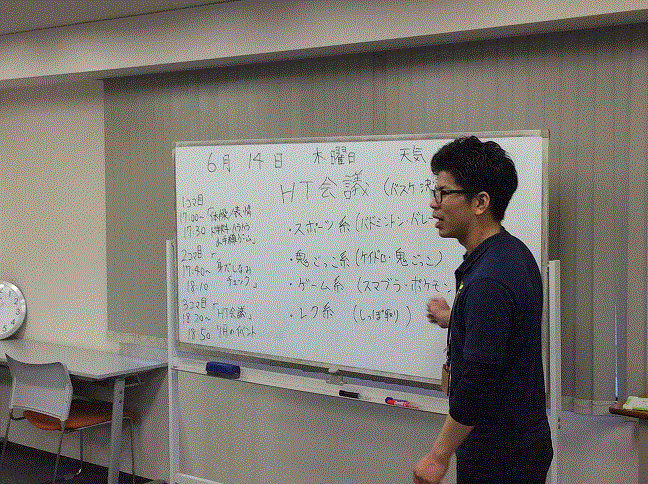 6月 14日 木曜日 天気
HT会議 (バスケ 決
1コマ目
17:00~
17:30
2コマ目
17:40~ 身だしなみ
18:10 チェック」
3コマ目
18:20~ 「HT会議」
18:50 7月のイベント
・スポーツ系 (バドミントン・バレー
・鬼ごっこ系 (ケイドロ・鬼ごっこ)
・ゲーム系 (スマブラ・ポケモン
・レク系 (しっぽ取り)